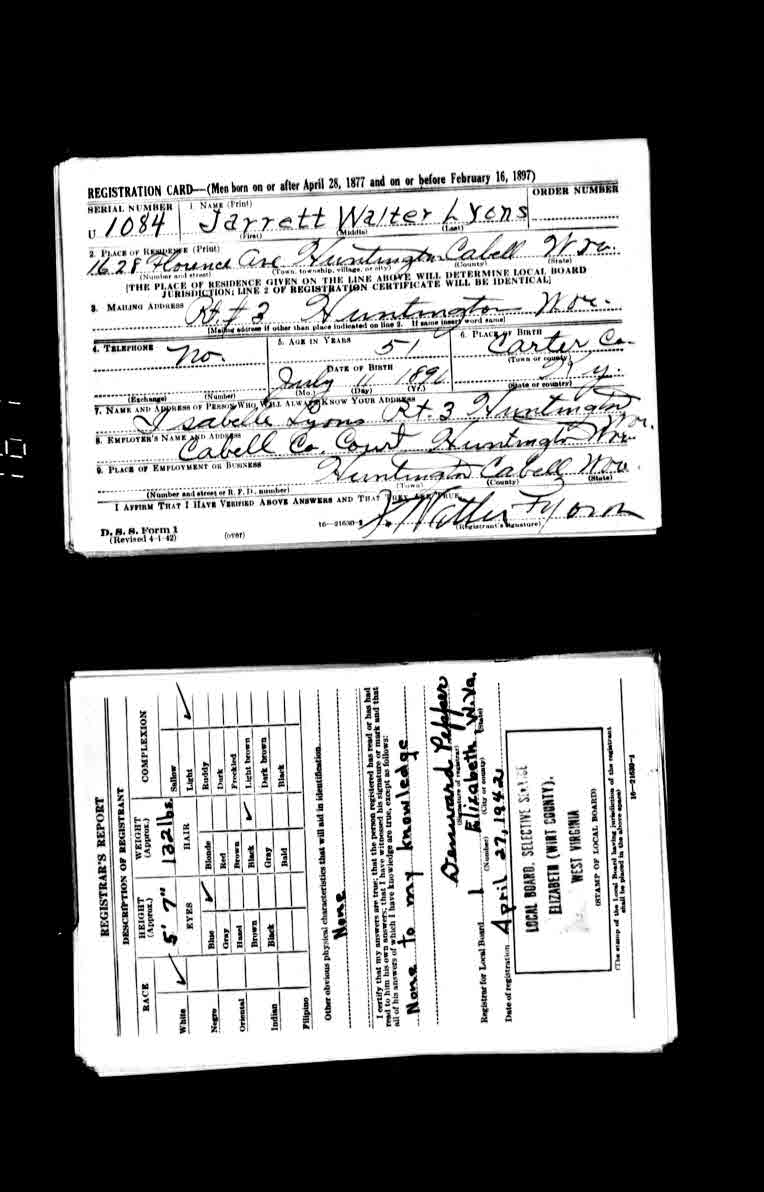 REGISTRATION CARD—(Men born on or after April 28, 1877 and on or before February 16, 1897)
SERIAL NUMBER 1. NAME (Print) ORDER NUMBER
U 1084 Jarrett Walter Lyons
(First) (Middle) (Last)
2. PLACE OF RESIDENCE (Print)
1628 Florence Ave Huntington Cabell W. Va.
(Number and street) (Town, township, village, or city) (County) (State)
[THE PLACE OF RESIDENCE GIVEN ON THE LINE ABOVE WILL DETERMINE LOCAL BOARD
JURISDICTION; LINE 2 OF REGISTRATION CERTIFICATE WILL BE IDENTICAL]
3. MAILING ADDRESS
Rt. # 3 Huntington W. Va.
[Mailing address if other than place indicated on line 2. If same insert word same]
4. TELEPHONE 5. AGE IN YEARS 6. PLACE OF BIRTH
No. 51 Carter Co.
(Town or county)
DATE OF BIRTH
July 11 1890 Ky.
(Exchange) (Number) (Mo.) (Day) (Yr.) (State or country)
7. NAME AND ADDRESS OF PERSON WHO WILL ALWAYS KNOW YOUR ADDRESS
Isabelle Lyons Rt. 3 Huntington W. Va.
8. EMPLOYER'S NAME AND ADDRESS
Cabell Co. Court Huntington W. Va.
9. PLACE OF EMPLOYMENT OR BUSINESS
Huntington Cabell W. Va.
(Number and street or R. F. D. number) (Town) (County) (State)
I AFFIRM THAT I HAVE VERIFIED ABOVE ANSWERS AND THAT THEY ARE TRUE.
J. Walter Lyons
D. S. S. Form 1
(Revised 4-1-42) (over) 16—21630-2 (Registrant's signature)
REGISTRAR'S REPORT
DESCRIPTION OF REGISTRANT
RACE HEIGHT (Approx.) WEIGHT (Approx.) COMPLEXION
White ✓ 5' 7" 132 lbs. Sallow
EYES HAIR Light ✓
Negro Blue ✓ Blonde Ruddy
Gray Red Dark
Oriental Hazel Brown Freckled
Brown Black ✓ Light brown
Indian Black Gray Dark brown
Bald Black
Filipino
Other obvious physical characteristics that will aid in identification
None
I certify that my answers are true; that the person registered has read or has had
read to him his own answers; that I have witnessed his signature or mark and that
all of his answers of which I have knowledge are true, except as follows:
None to my knowledge
Denward Pepper
(Signature of registrar)
Registrar for Local Board 1 Elizabeth W. Va.
(Number) (City or county) (State)
Date of registration April 27, 1942
LOCAL BOARD, SELECTIVE SERVICE
ELIZABETH (WIRT COUNTY),
WEST VIRGINIA
(STAMP OF LOCAL BOARD)
(The stamp of the Local Board having jurisdiction of the registrant
shall be placed in the above space)
16—21630-1